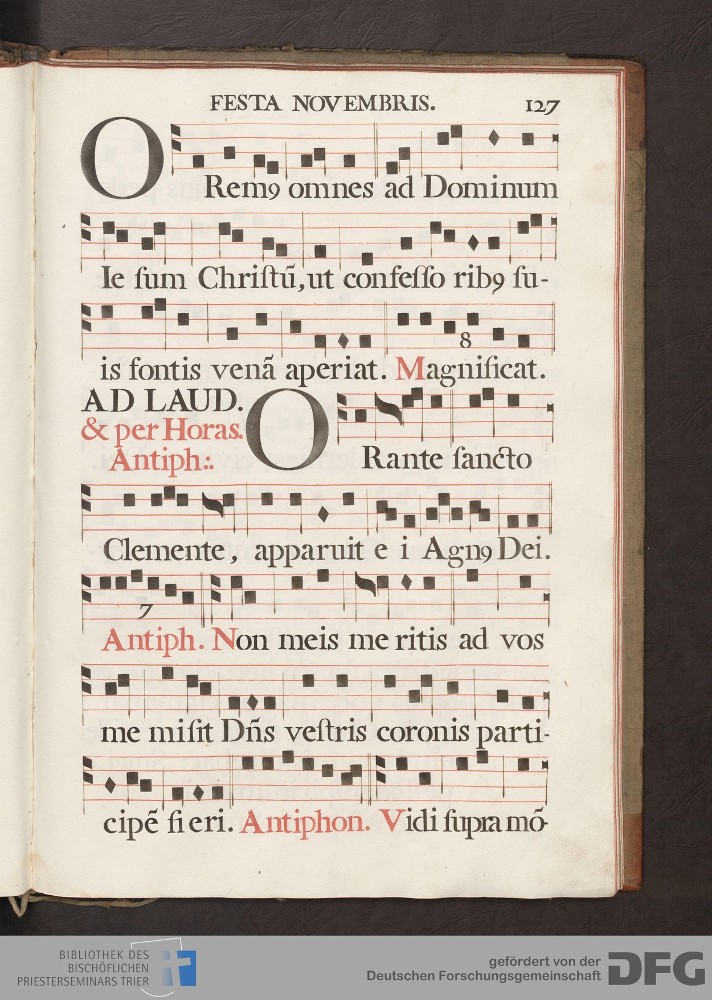 FESTA NOVEMBRIS. 127
ORemꝯ omnes ad Dominum
Ie ſum Chriſtū, ut confeſſo ribꝯ ſu-
is fontis venā aperiat. Magnificat.
8
AD LAUD.
& per Horas.
Antiph:.
ORante ſancto
Clemente, apparuit e i Agnꝯ Dei.
7
Antiph. Non meis me ritis ad vos
me miſit Dn̄s veſtris coronis parti-
cipē fi eri. Antiphon. Vidi ſupra mō-
BIBLIOTHEK DES
BISCHÖFLICHEN
PRIESTERSEMINARS TRIER
gefördert von der
Deutschen Forschungsgemeinschaft
DFG